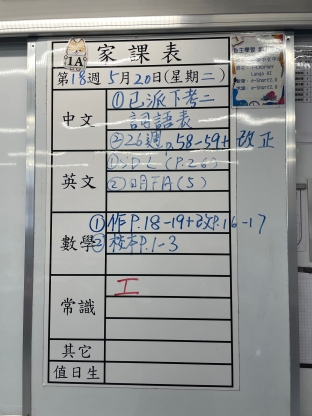 1A
家課表
第18週 5月20日(星期二)
中文
①已派下考二
詞語表
②26週 p.58-59+改正
英文
①SDL (P.26)
數學
①作P.18-19+改P.16-17
②校本P.1-3
常識
工
其它
值日生